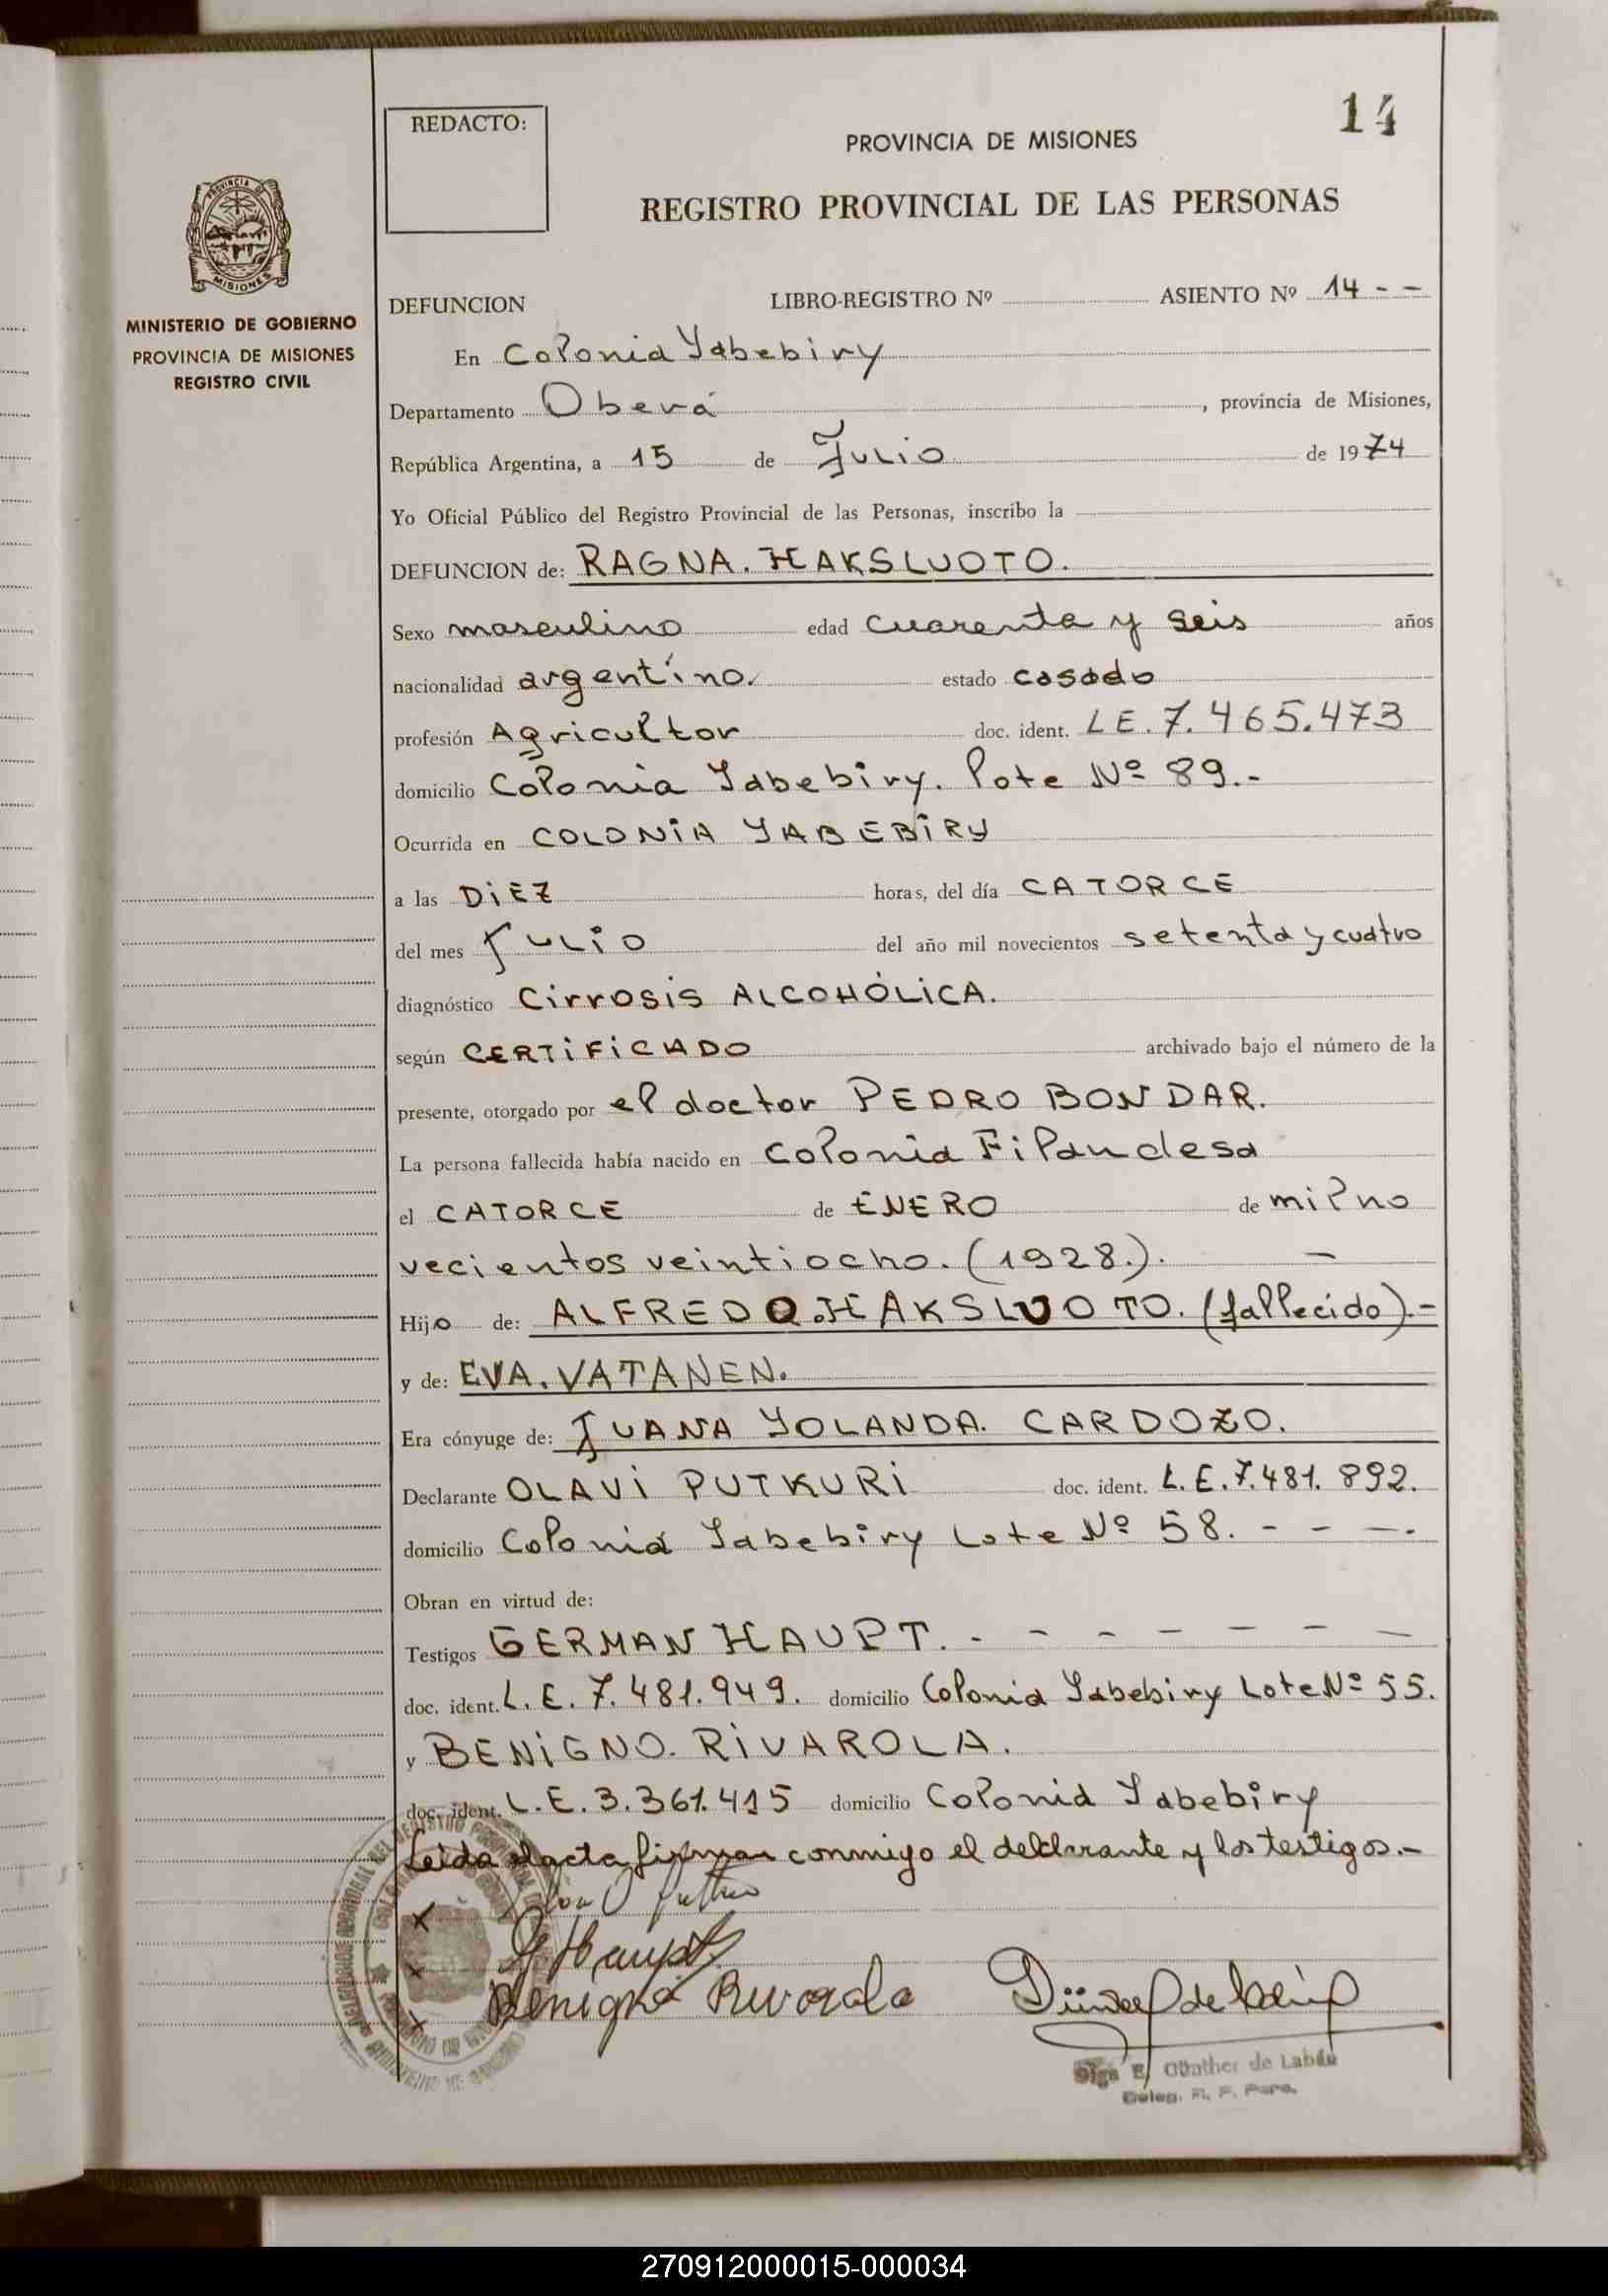 14
REDACTO:
PROVINCIA DE MISIONES
REGISTRO PROVINCIAL DE LAS PERSONAS
PROVINCIA DE
MISIONES
MINISTERIO DE GOBIERNO
PROVINCIA DE MISIONES
REGISTRO CIVIL
DEFUNCION LIBRO-REGISTRO Nº ASIENTO Nº 14 - -
En Colonia Yabebiry
Departamento Oberá, provincia de Misiones,
República Argentina, a 15 de Julio de 1974
Yo Oficial Público del Registro Provincial de las Personas, inscribo la
DEFUNCION de: RAGNA. HAKSLUOTO.
Sexo masculino edad cuarenta y seis años
nacionalidad argentino. estado casado
profesión Agricultor doc. ident. LE. 7.465.473
domicilio Colonia Yabebiry. lote Nº 89.-
Ocurrida en COLONIA YABEBIRY
a las DIEZ horas, del día CATORCE
del mes Julio del año mil novecientos setenta y cuatro
diagnóstico Cirrosis ALCOHÓLICA.
según CERTIFICADO archivado bajo el número de la
presente, otorgado por el doctor PEDRO BONDAR.
La persona fallecida había nacido en Colonia Filandesa
el CATORCE de ENERO de mil no
vecientos veintiocho. (1928.). -
Hijo de: ALFREDO. HAKSLUOTO. (fallecido).-
y de: EVA. VATANEN.
Era cónyuge de: JUANA YOLANDA. CARDOZO.
Declarante OLAVI PUTKURI doc. ident. L.E.7.481.892.
domicilio Colonia Yabebiry Lote Nº 58. - - -.
Obran en virtud de:
Testigos GERMAN HAUPT. - - - - - - -
doc. ident. L.E. 7.481.949. domicilio Colonia Yabebiry Lote Nº 55.
y BENIGNO. RIVAROLA.
doc. ident. L.E. 3.361.415 domicilio Colonia Yabebiry
Leida el acta firman conmigo el deldarante y los testigos.-
G. Haupt
Benigno Rivarola
Olga E. Günther de Labáu
Deleg. R. P. Pers.
270912000015-000034